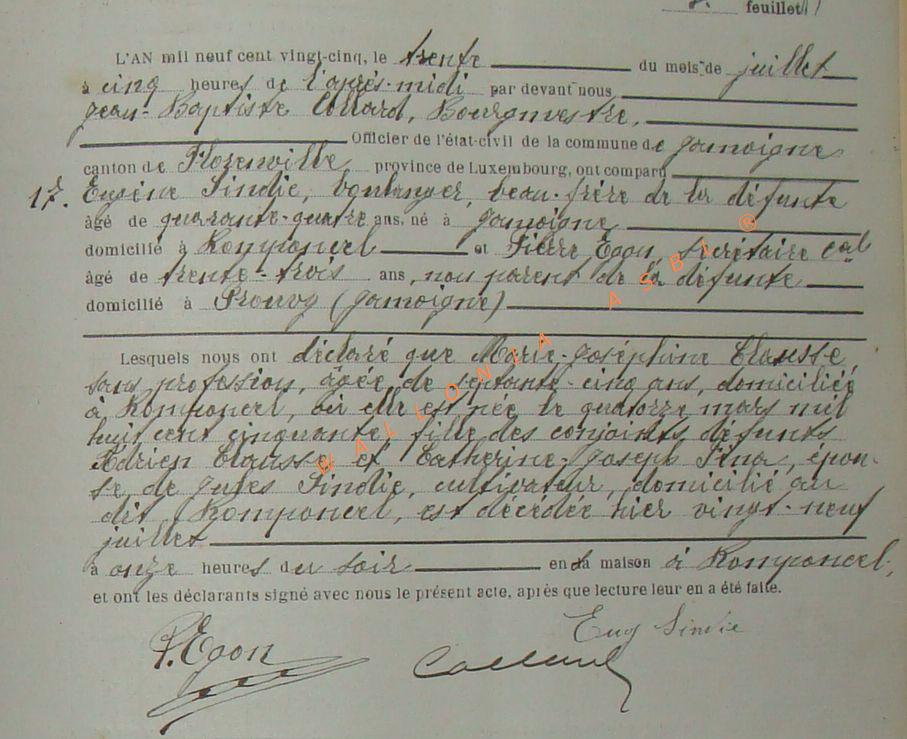 feuillet
L'AN mil neuf cent vingt-cinq, le trente du mois de juillet
à cinq heures de l'après-midi par devant nous
Jean-Baptiste Collard, Bourgmestre,
Officier de l'état-civil de la commune de Jamoigne
canton de Florenville province de Luxembourg, ont comparu
17. Eugène Sindic, boulanger, beau-frère de la défunte
âgé de quarante-quatre ans, né à Jamoigne
domicilié à Romponcel et Pierre Egon, secrétaire cal
âgé de trente-trois ans, non parent de la défunte
domicilié à Prouvy (Jamoigne)
Lesquels nous ont déclaré que Marie-Joséphine Clausse
sans profession, âgée de septante-cinq ans, domiciliée
à Romponcel, où elle est née le quatorze mars mil
huit cent cinquante, fille des conjoints défunts
Adrien Clausse et Catherine-Joseph Pina, épou-
se de Jules Sindic, cultivateur, domicilié au
dit Romponcel, est décédée hier vingt-neuf
juillet
à onze heures du soir en sa maison à Romponcel,
et ont les déclarants signé avec nous le présent acte, après que lecture leur en a été faite.
P. Egon
Eug Sindic
Collard
WALLONIA ASBL ©